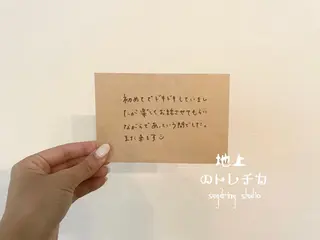 初めてでドキドキしていまし
たが楽しくお話させてもらい
ながらであっという間でした。
また来ます
地上
のトレチカ